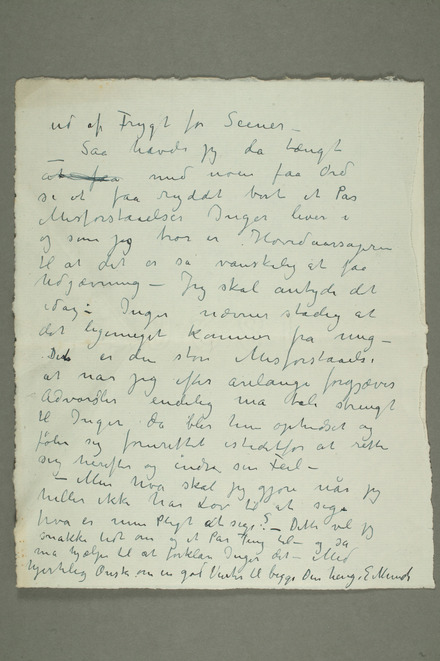 ud af Frygt for Scener –
– Saa havde jeg da tængt
med nom faa Ord
se at faa ryddet bort et Par
Misforstaaelser Inger lever i
og som jeg tror er Hovedaarsagen
til at det er så vanskelig at faa
Udjævning – Jeg skal antyde det
idag: – Inger nævner stadig at
det kommer fra mig –
Det er den store Misforstaaelse
at når jeg efter forgjæves
Advarsler endelig må tale strengt
til Inger, da blir hun ophidset og
føler sig forurettet istedetfor at rette
sig herefter og ændre sin Feil –
– Men hva skal jeg gjøre når jeg
heller ikke har Lov til at sige
hva er min Pligt at sige? – Dette vil jeg
snakke lidt om og et Par Ting til – og så
må hjælpe til at forklare Inger det – Med
hjertelig Ønske om en god til begge Din heng. E Munch